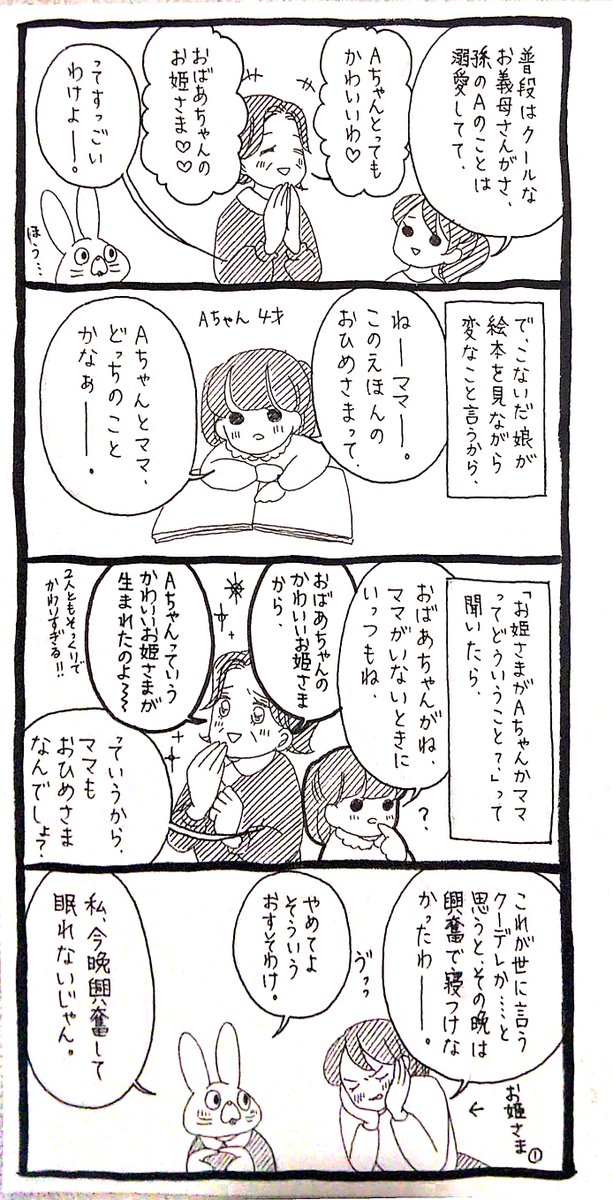 普段はクールな
お義母さんがさ、
孫のAのことは
溺愛してて、
Aちゃんとっても
かわいいわ♡
おばあちゃんの
お姫さま♡♡
ってすっごい
わけよー。
ほう…
で、こないだ娘が
絵本を見ながら
変なこと言うから、
ねーママー。
このえほんの
おひめさまって、
Aちゃん 4才
Aちゃんとママ、
どっちのこと
かなぁー。
「お姫さまがAちゃんかママ
ってどういうこと?」って
聞いたら、
おばあちゃんがね、
ママがいないときに
いっつもね、
?
おばあちゃんの
かわいいお姫さま
から、
Aちゃんっていう
かわいいお姫さまが
生まれたのよ〜〜
2人ともそっくりで
かわいすぎる!!
っていうから、
ママも
おひめさま
なんでしょ?
これが世に言う
クーデレか……と
思うと、その晩は
興奮で寝つけな
かったわー。
お姫さま①
←
ヴッっ
やめてよ
そういう
おすそわけ。
私、今晩興奮して
眠れないじゃん。